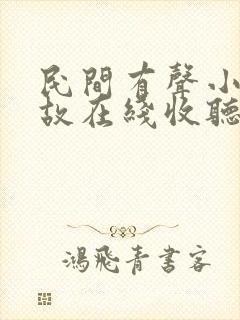 民間有聲小
故在綫收聽
鴻飛青書客